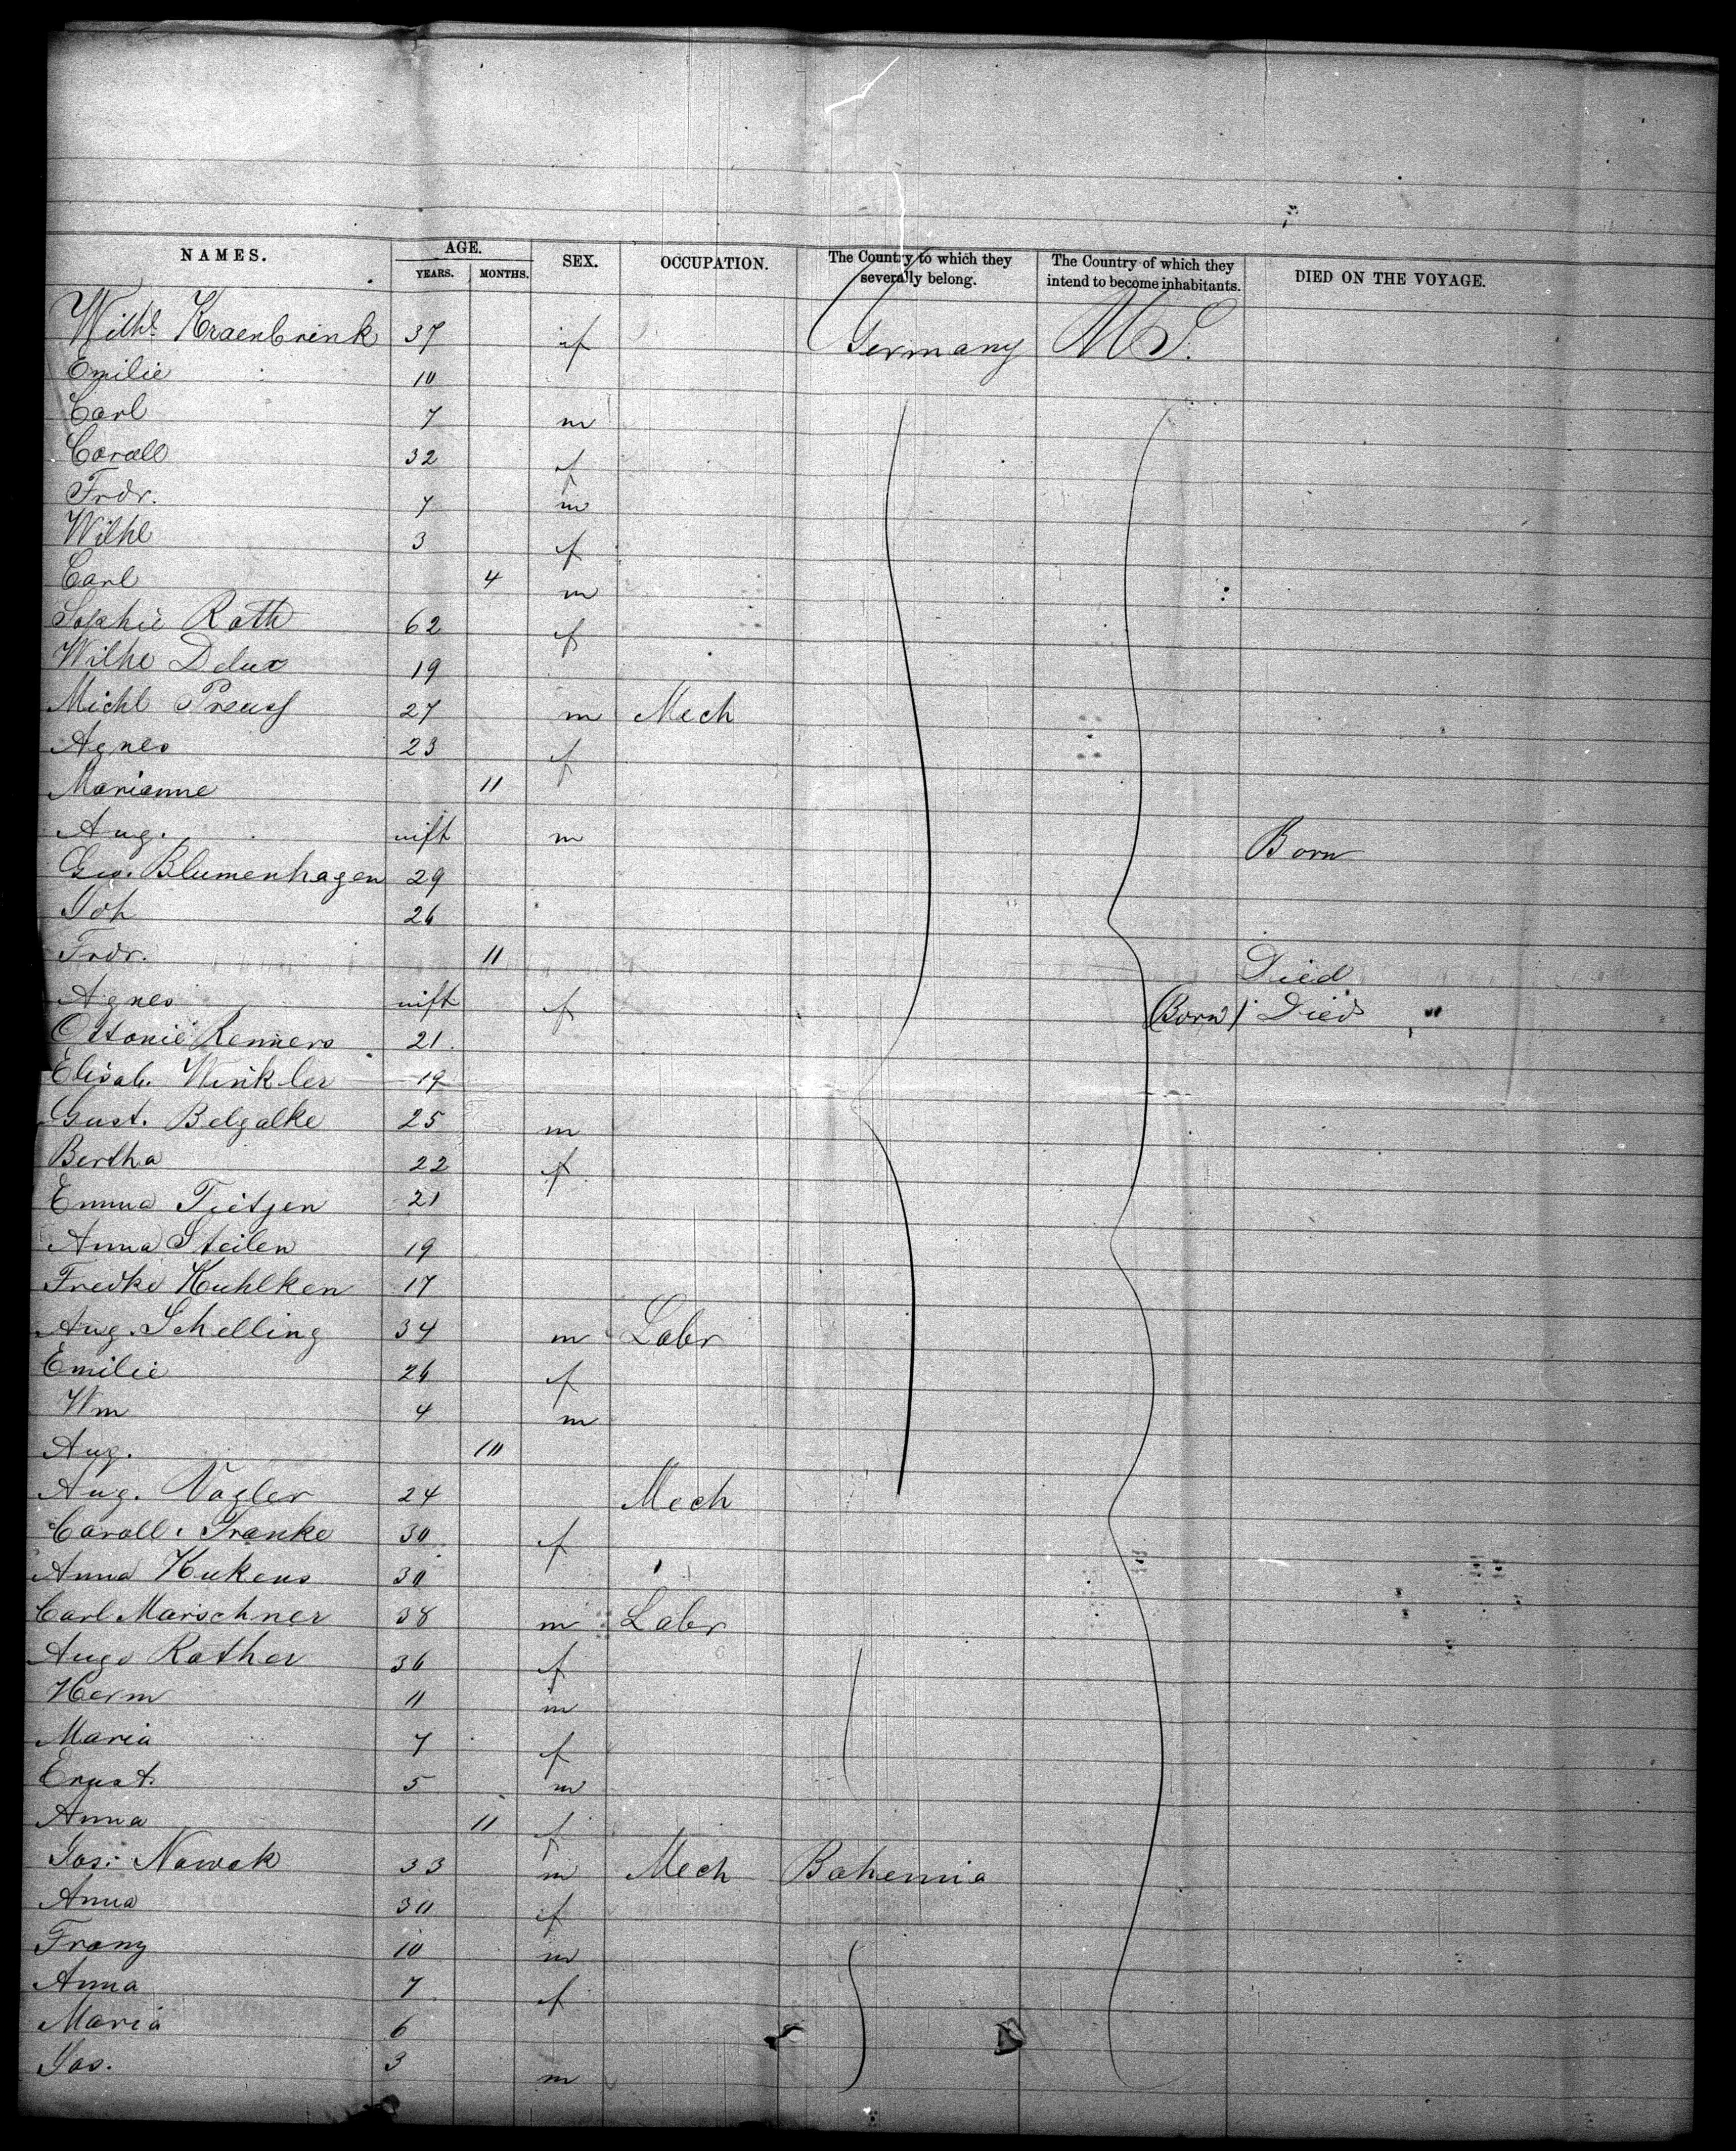 NAMES. AGE. YEARS. MONTHS. SEX. OCCUPATION. The Country to which they severally belong. The Country of which they intend to become inhabitants. DIED ON THE VOYAGE.
Wilhe Kraenbrink 37 f Germany US.
Emilie 10
Carl 7 m
Caroll 32 f
Frdr. 7 m
Wilhe 3 f
Carl 4 m
Sophie Rath 62 f
Wilhe Delux 19
Michl Preuss 27 m Mech
Agnes 23 f
Marianne 11
Aug. inft m Born
Geo. Blumenhagen 29
Joh 26
Frdr. 11 Died
Agnes inft f (Born) Died
Ottonie Renners 21
Elisab. Winkler 19
Gust. Belgalke 25 m
Bertha 22 f
Emma Tietjen 21
Anna Steilen 19
Fredke Kuhlken 17
Aug. Schelling 34 m Labr
Emilie 26 f
Wm 4 m
Aug. 10
Aug. Vogler 24 Mech
Caroll. Franke 30 f
Anna Kukens 30
Carl Marschner 38 m Labr
Auge Rather 36 f
Herm 11 m
Maria 7 f
Ernst. 5 m
Anna 11 f
Jos. Nowak 33 m Mech Bohemia
Anna 30 f
Franz 10 m
Anna 7 f
Maria 6
Jos. 3 m